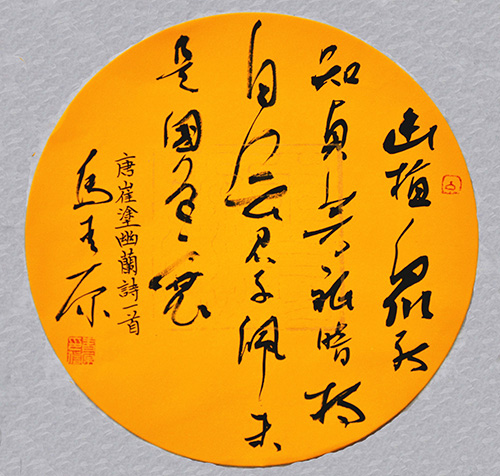 幽植眾
知貞芳祗暗持
自無君子佩未
是國香衰
唐崔塗幽蘭詩一首
馬 原